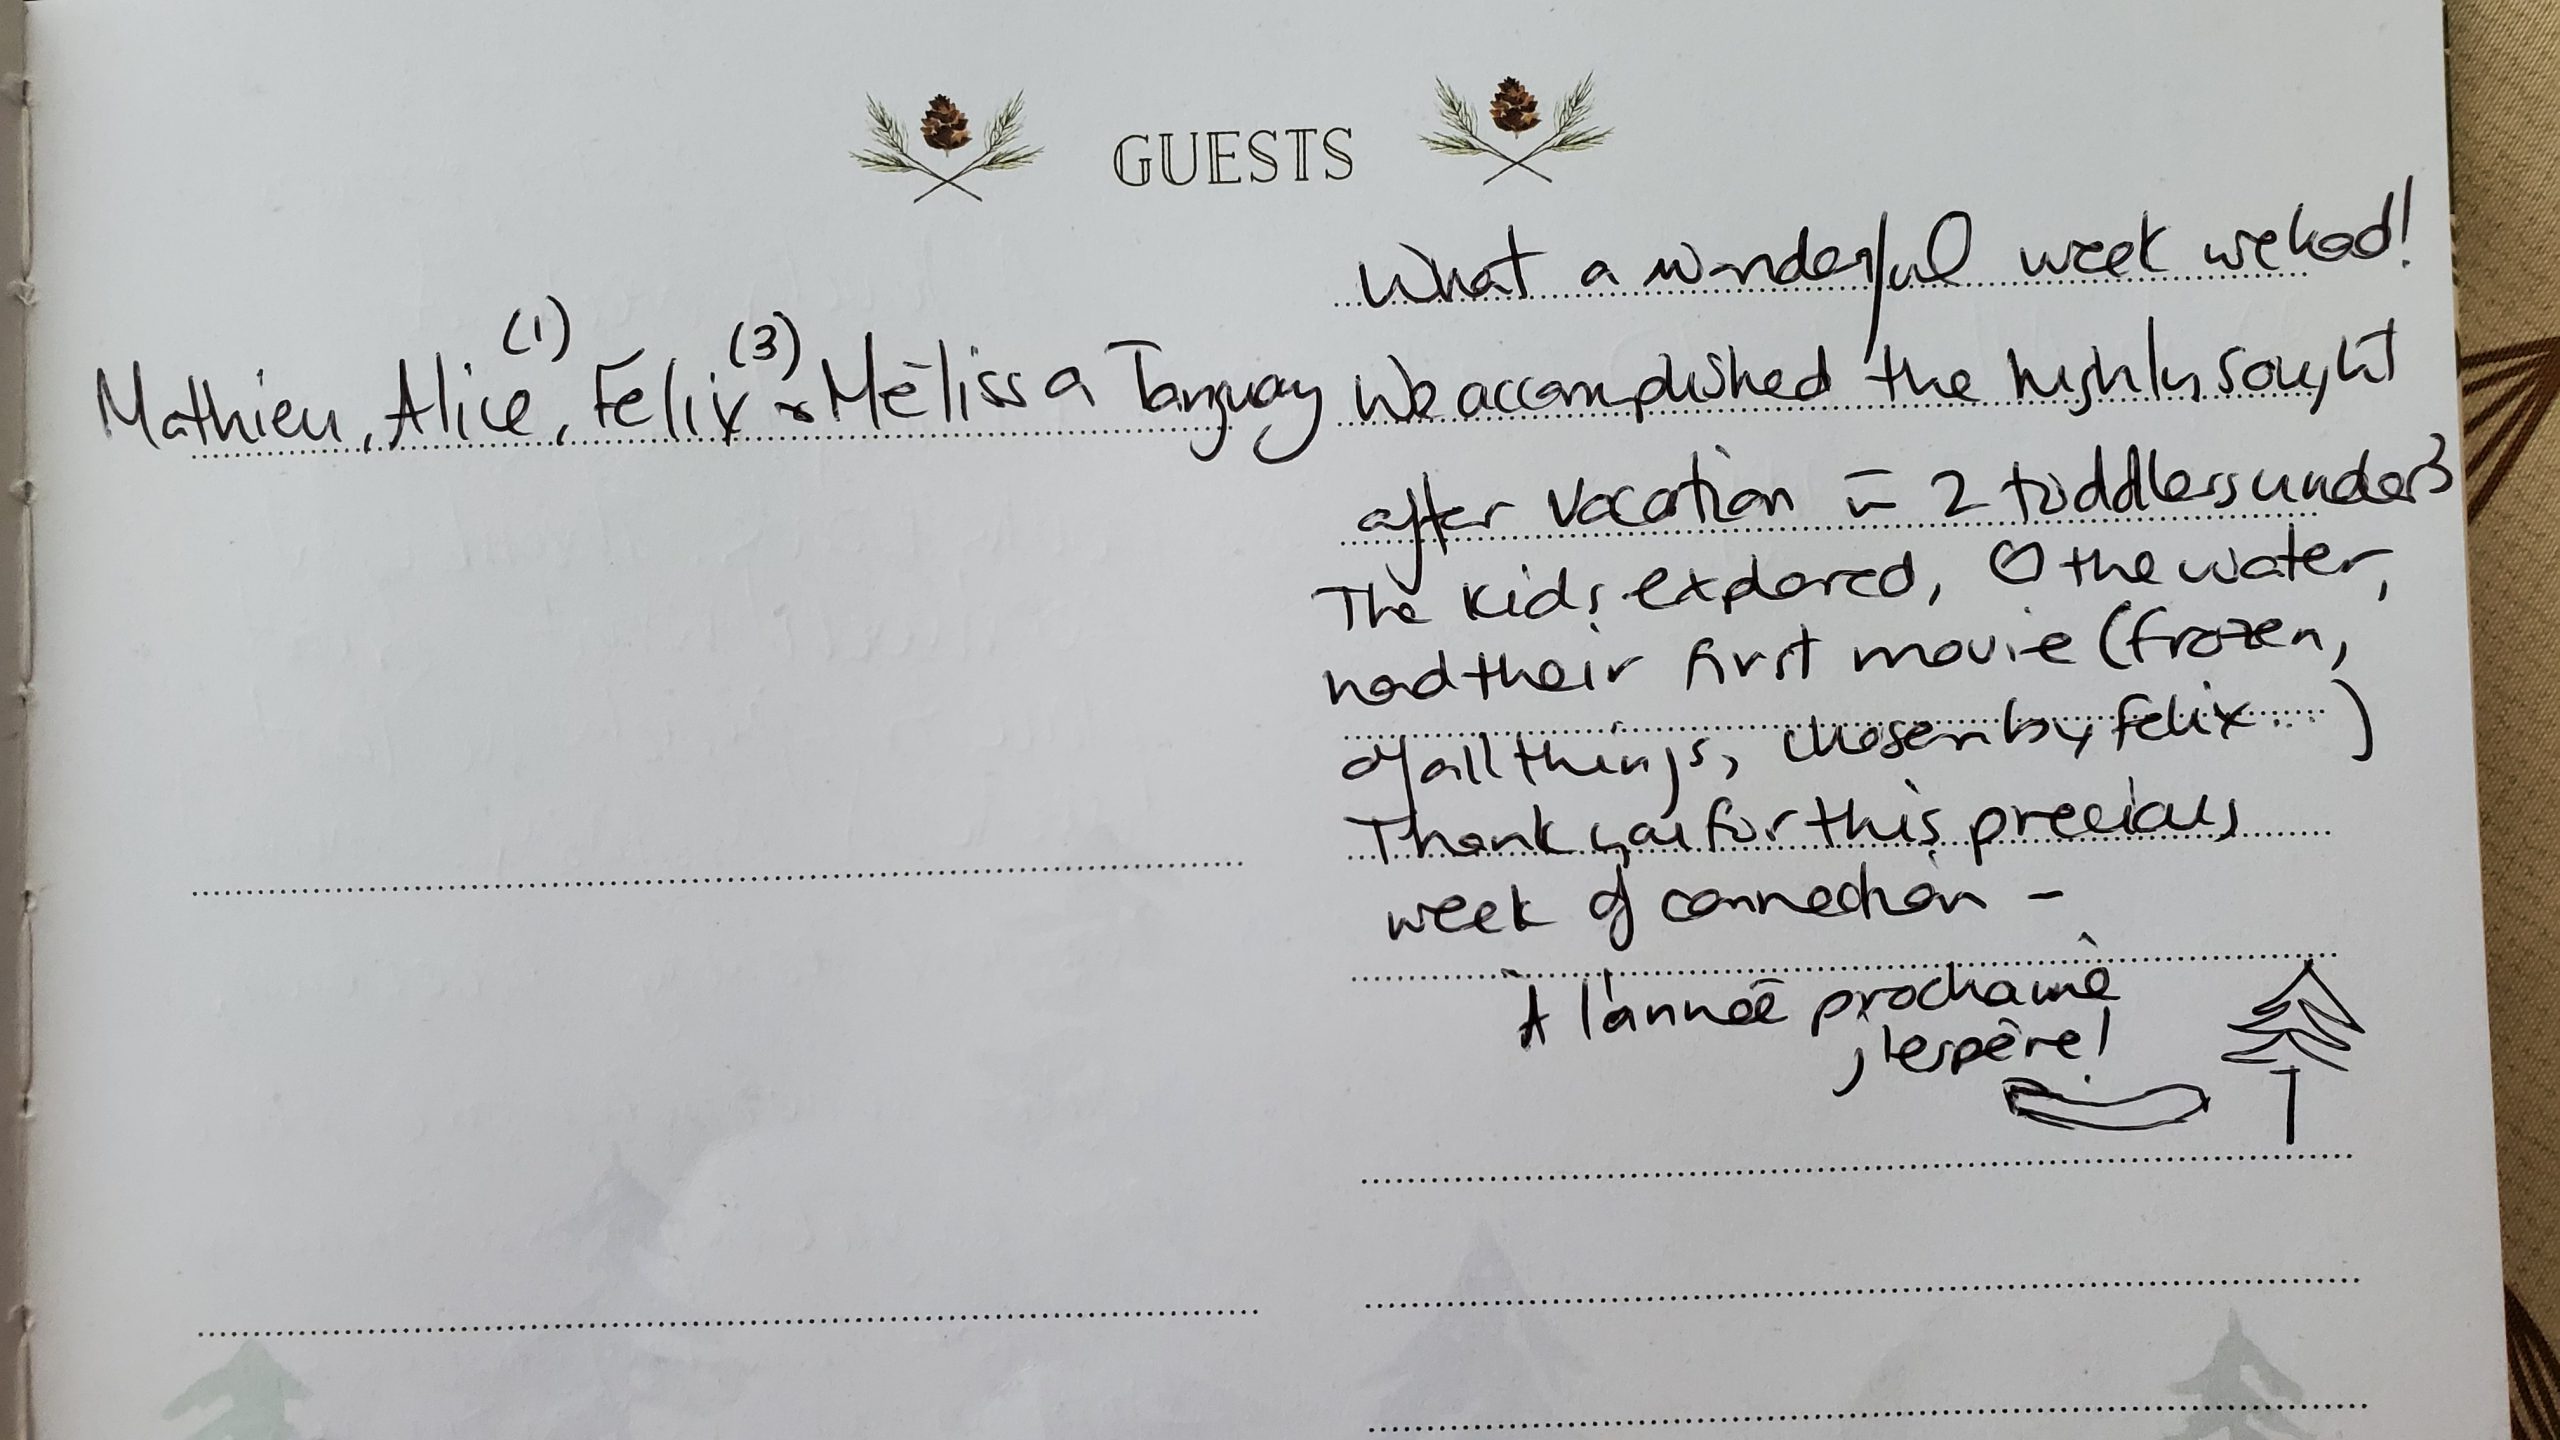 GUESTS
Mathieu, Alice (1), Felix (3) & Mélissa Tanguay
What a wonderful week we had!
We accomplished the highly sought
after vacation c̄ 2 toddlers under 3
The kids explored, ♡ the water,
had their first movie (frozen,
of all things, chosen by felix...)
Thank you for this precious
week of connection -
À l'année prochaine
j'espère!